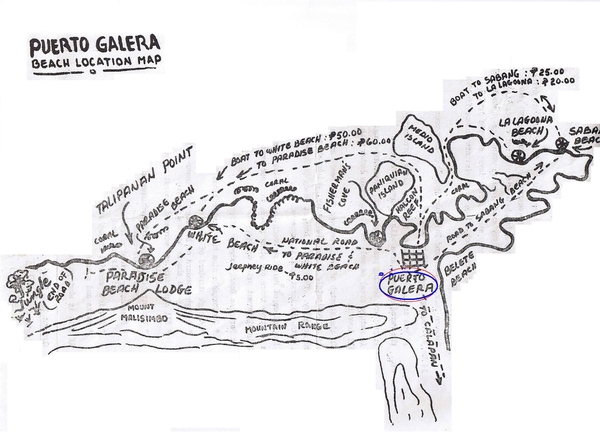 PUERTO GALERA
BEACH LOCATION MAP
BOAT TO SABANG : ₱25.00
TO LA LAGOONA : ₱20.00
LA LAGOONA
BEACH
SABANG
BEACH
MEDIO
ISLAND
BOAT TO WHITE BEACH : ₱50.00
TO PARADISE BEACH : ₱60.00
TALIPANAN POINT
PARADISE
BEACH
CORAL
FISHERMANS
COVE
PANIQUIAN
ISLAND
HALCON
REEF
CORAL
CORAL
WHITE BEACH
NATIONAL ROAD
TO PARADISE &
WHITE BEACH
JEEPNEY RIDE : ₱5.00
ROAD TO SABANG BEACH
BELETE
BEACH
PUERTO
GALERA
PARADISE
BEACH LODGE
Jungle
END OF
ROAD
MOUNT
MALISIMBO
MOUNTAIN RANGE
TO CALAPAN